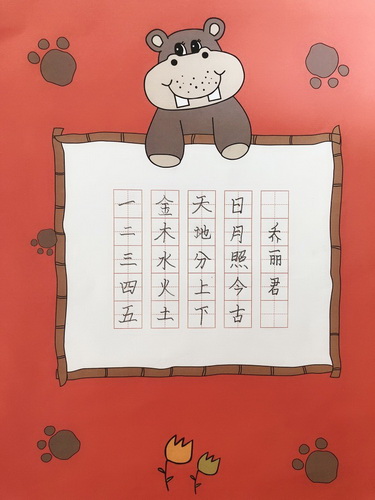 一二三四五
金木水火土
天地分上下
日月照今古
乔丽君